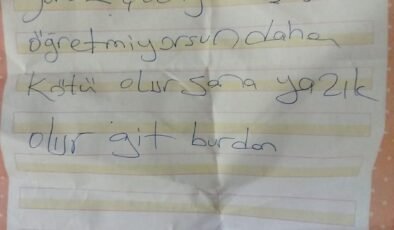 öğretmiyorsun daha
kötü olur sana yazık
olur git burdan